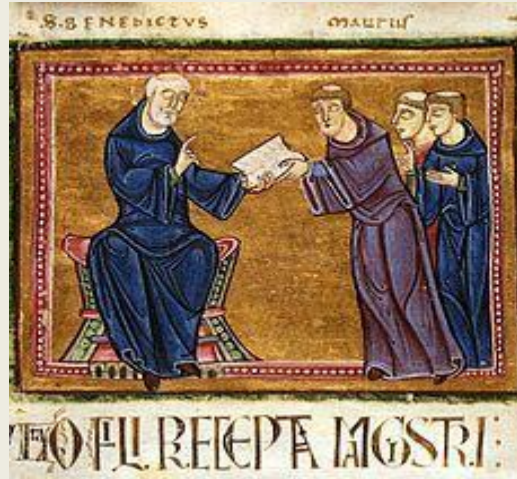 .S. BENEDICTVS MAURUS
O FILI. RECEPTA MAGISTRI: